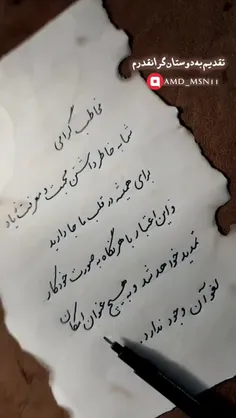 تقدیم به دوستان گرانقدرم
AMD_MSN11
مخاطب گرامی
شما به خاطر داشتن محبت و معرفت زیاد
برای همیشه در قلب ما جا دارید
و این اعتبار با هر نگاه به صورت خودکار
تمدید خواهد شد و به هیچ عنوان امکان
لغو آن وجود ندارد.